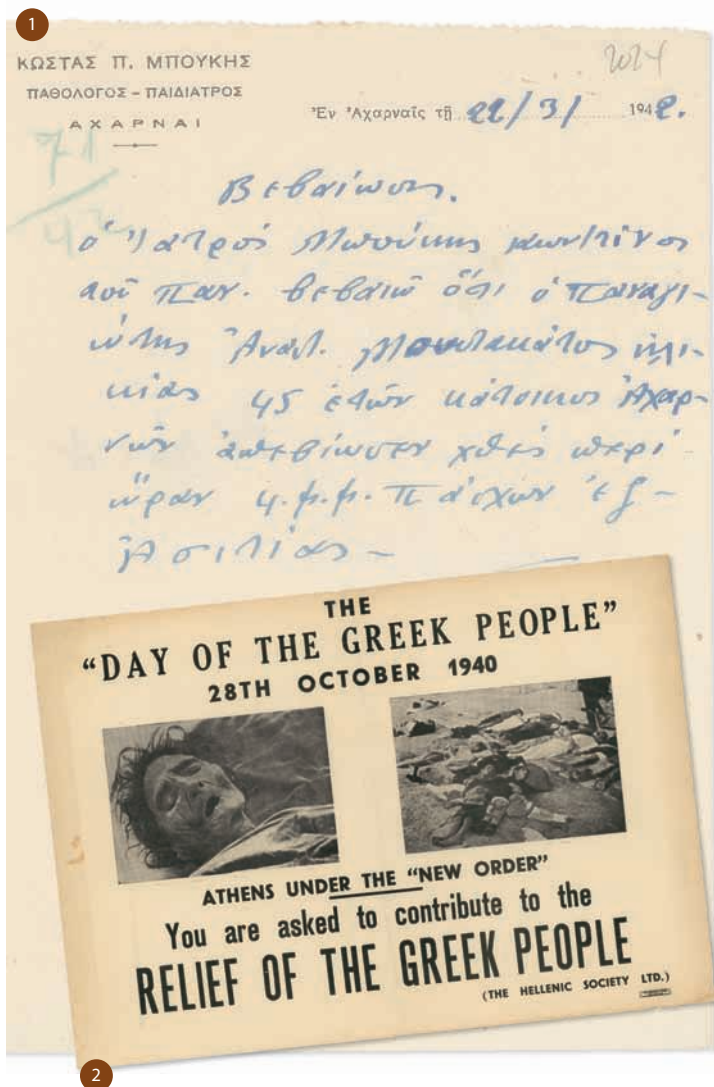 1
ΚΩΣΤΑΣ Π. ΜΠΟΥΚΗΣ
ΠΑΘΟΛΟΓΟΣ - ΠΑΙΔΙΑΤΡΟΣ
ΑΧΑΡΝΑΙ
2024
Ἐν Ἀχαρναῖς τῇ 22/3/ 1942.
71
42
Βεβαίωσις.
ὁ Ἰατρός Μπούκης Κων/τῖνος
τοῦ Παν. βεβαιῶ ὅτι ὁ Παναγι-
ώτης Ἀναστ. Μουστακάτος ἡλι-
κίας 45 ἐτῶν κάτοικος Ἀχαρ-
νῶν ἀπεβίωσεν χθές περί
ὥραν 4.μ.μ. πάσχων ἐξ-
Ἀσιτίας -
THE
“DAY OF THE GREEK PEOPLE”
28TH OCTOBER 1940
ATHENS UNDER THE “NEW ORDER”
You are asked to contribute to the
RELIEF OF THE GREEK PEOPLE
(THE HELLENIC SOCIETY LTD.)
2